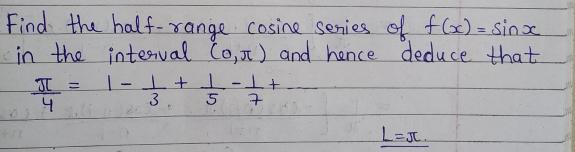 Find the half-range cosine series of f(x) = sinx
in the interval (0,π) and hence deduce that
π/4 = 1 - 1/3 + 1/5 - 1/7 + ---
L=π.